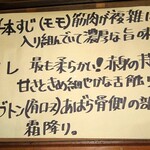 本すじ(モモ)筋肉が複雑に
入り組んでいて濃厚な旨の味
レ 最も柔らかい!赤身の持
甘さときめ細やかな舌触り
ブトン(肩ロス)あばら骨側の部
霜降り。